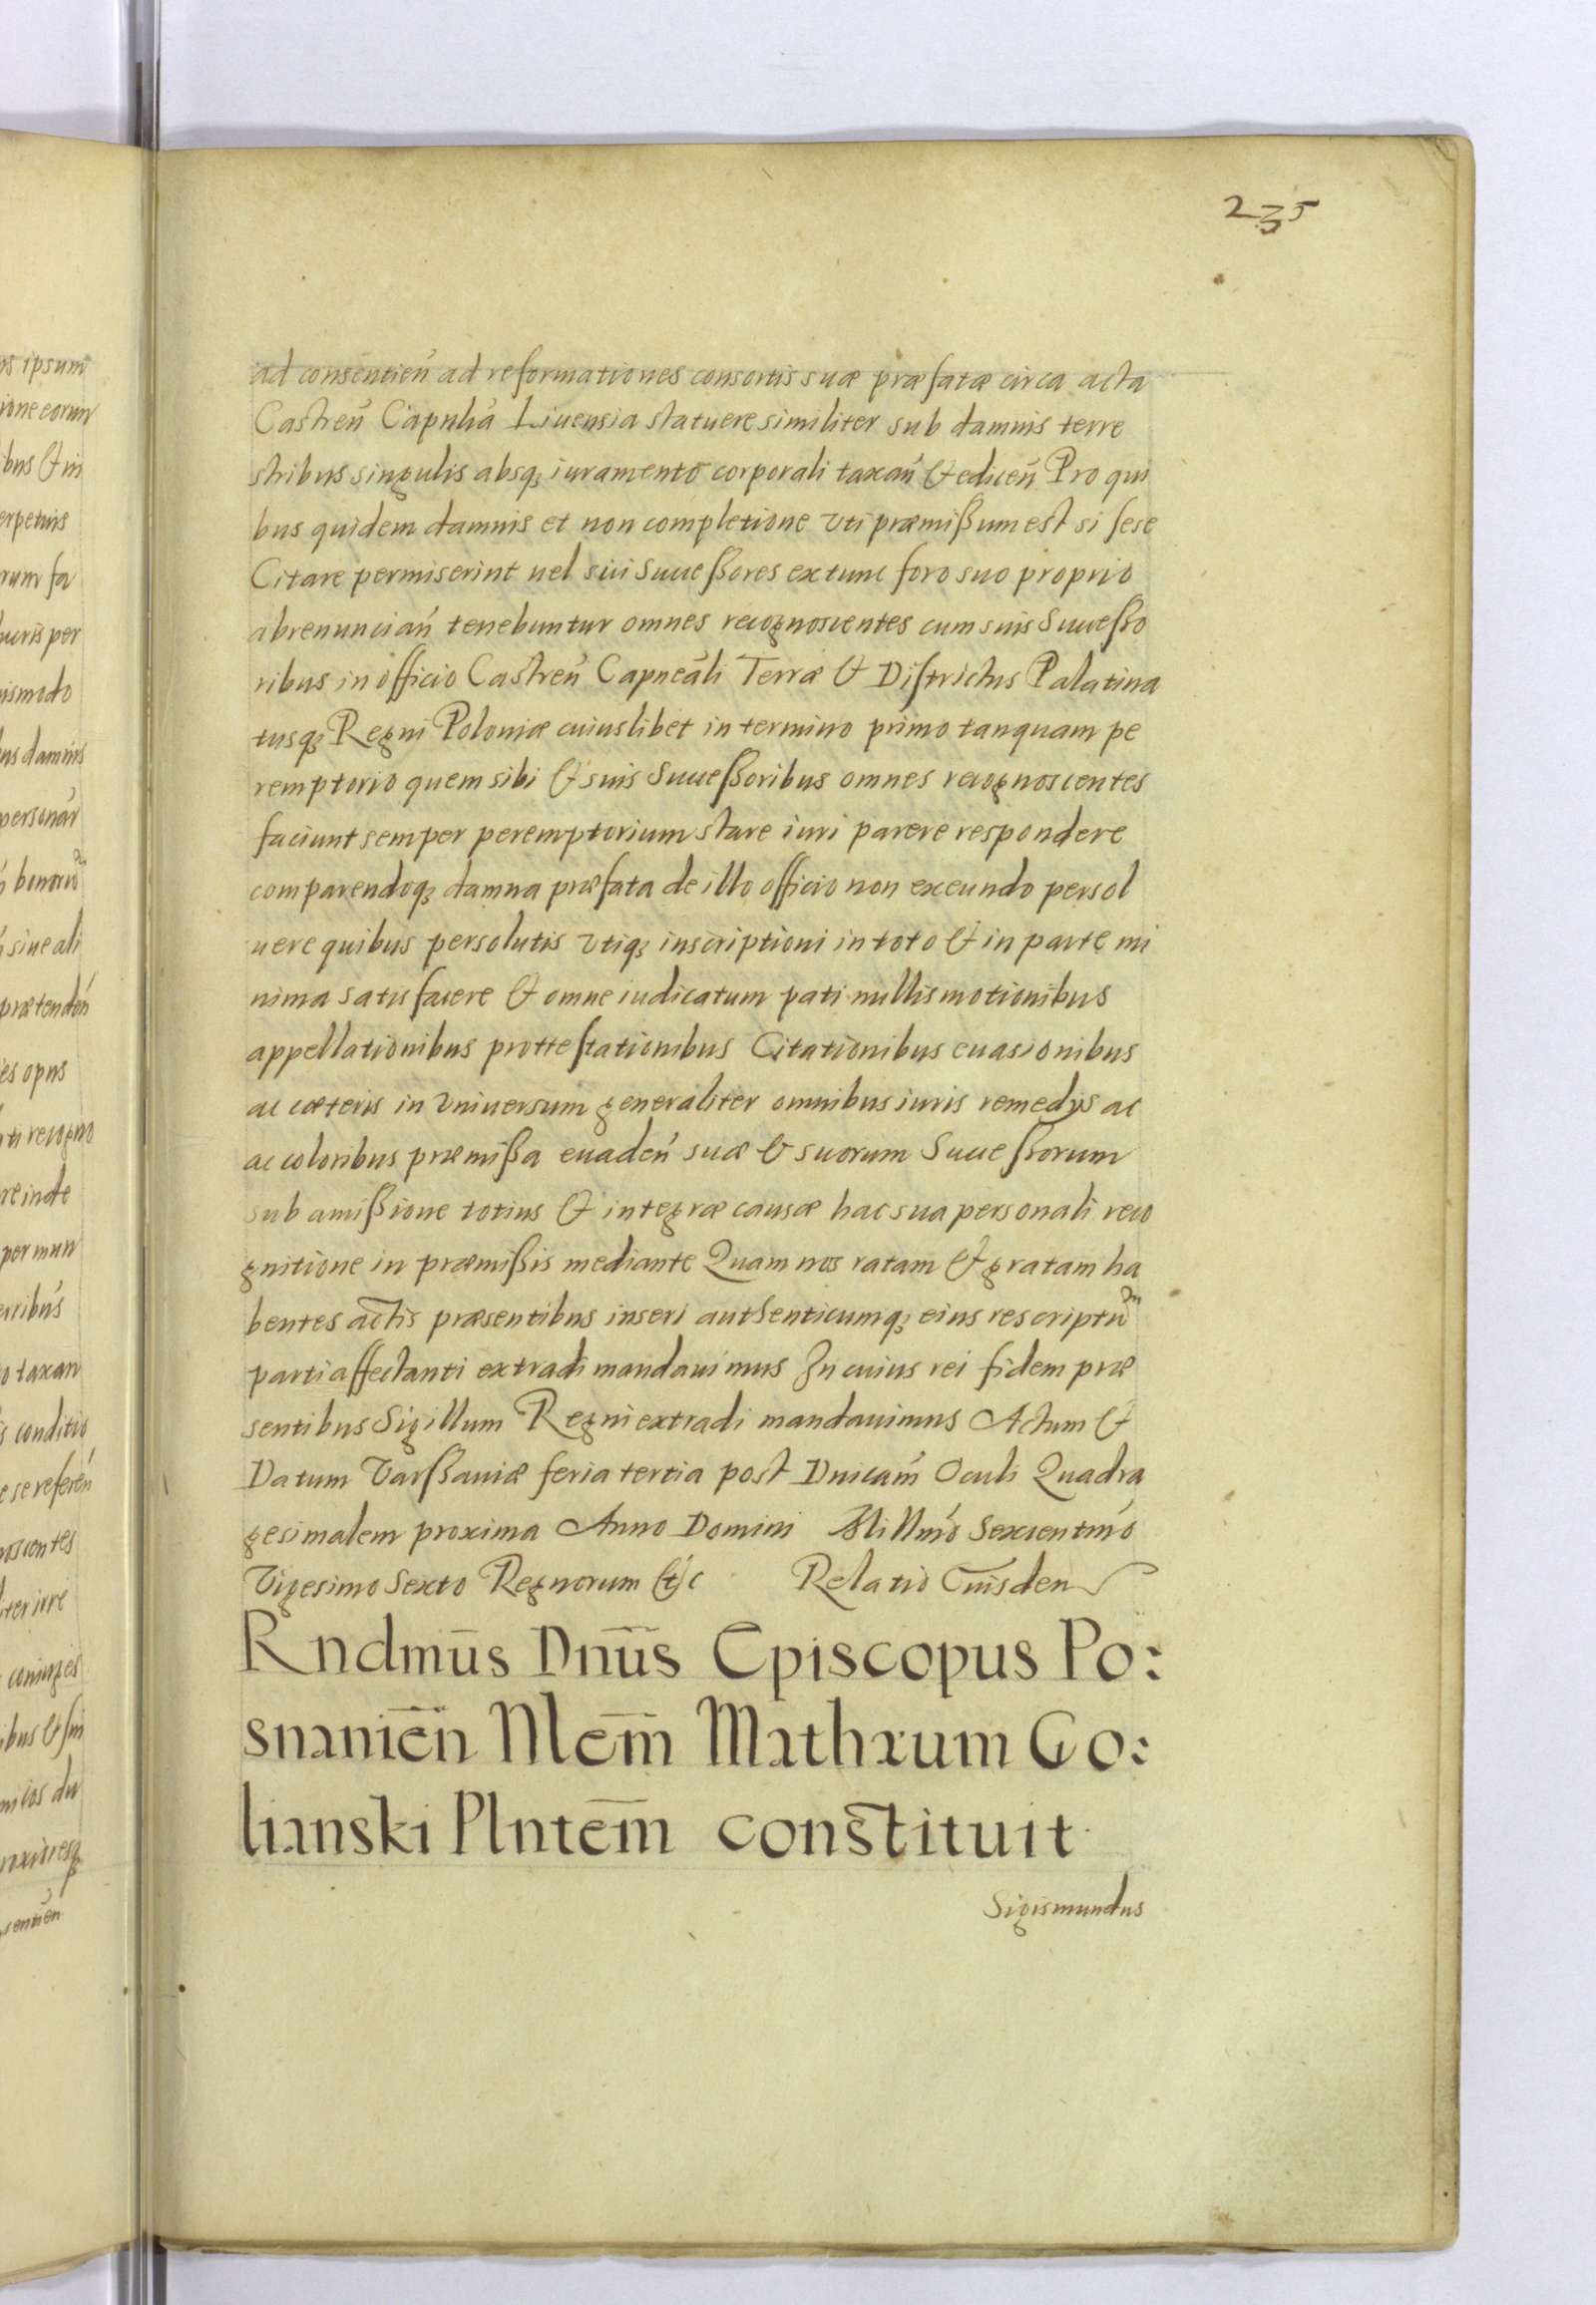 235
ad consentień ad reformationes consortis suæ præfatæ circa acta
Castreń Capnlia Liuensia statuere similiter sub damnis terre
stribus singulis absq; iuramento corporali taxań & ediceń Pro qui
bus quidem damnis et non completione vti præmißum est si sese
Citare permiserint uel sui Succeßores extunc foro suo proprio
abrenunciań tenebuntur omnes recognoscentes cum suis Succeßo
ribus in officio Castreń Capneali Terræ & Districtus Palatina
tusq; Regni Poloniæ cuiuslibet in termino primo tanquam pe
remptorio quem sibi & suis Succeßoribus omnes recognoscentes
faciunt semper peremptorium stare iuri parere respondere
comparendoq; damna præfata de illo officio non exeundo persol
uere quibus persolutis vtiq; inscriptioni in toto & in parte mi
nima satisfacere & omne iudicatum pati nullis motionibus
appellationibus prottestationibus Citationibus euasionibus
ac cæteris in vniuersum generaliter omnibus iuris remedys ac
ac coloribus præmißa euadeń suæ & suorum Succeßorum
sub amißione totius & integræ causæ hac sua personali reco
gnitione in præmißis mediante Quam nos ratam & gratam ha
bentes actis præsentibus inseri authenticumq; eius rescriptu͂
parti affectanti extradi mandauimus In cuius rei fidem præ
sentibus Sigillum Regni extradi mandauimus Actum &
Datum Varßauiæ feria tertia post Dnicam̄ Oculi Quadra
gesimalem proxima Anno Domini Millmó Sexcentmó
Vigesimo Sexto Regnorum &c Relatio Cuisdem
Rndmūs Dnūs Episcopus Po:
snaniēn Mlem̄ Mathæum Go:
lianski Plntem̄ constituit
Sigismundus